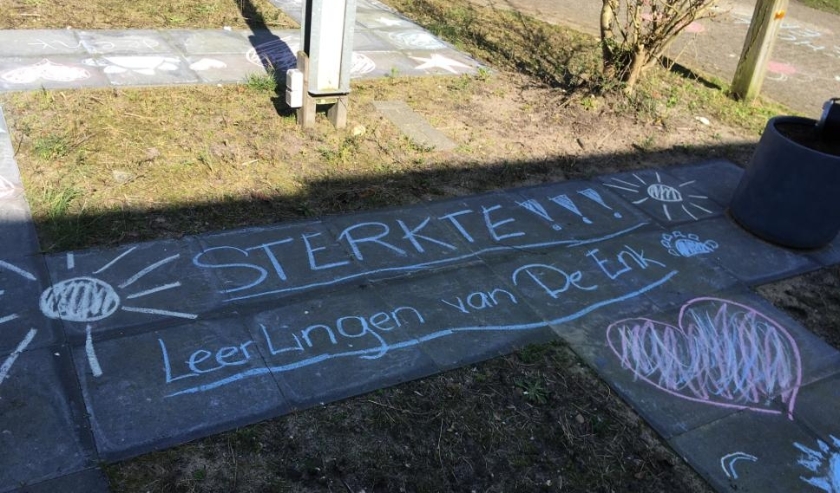 STERKTE!!!
LeerLingen van De Enk